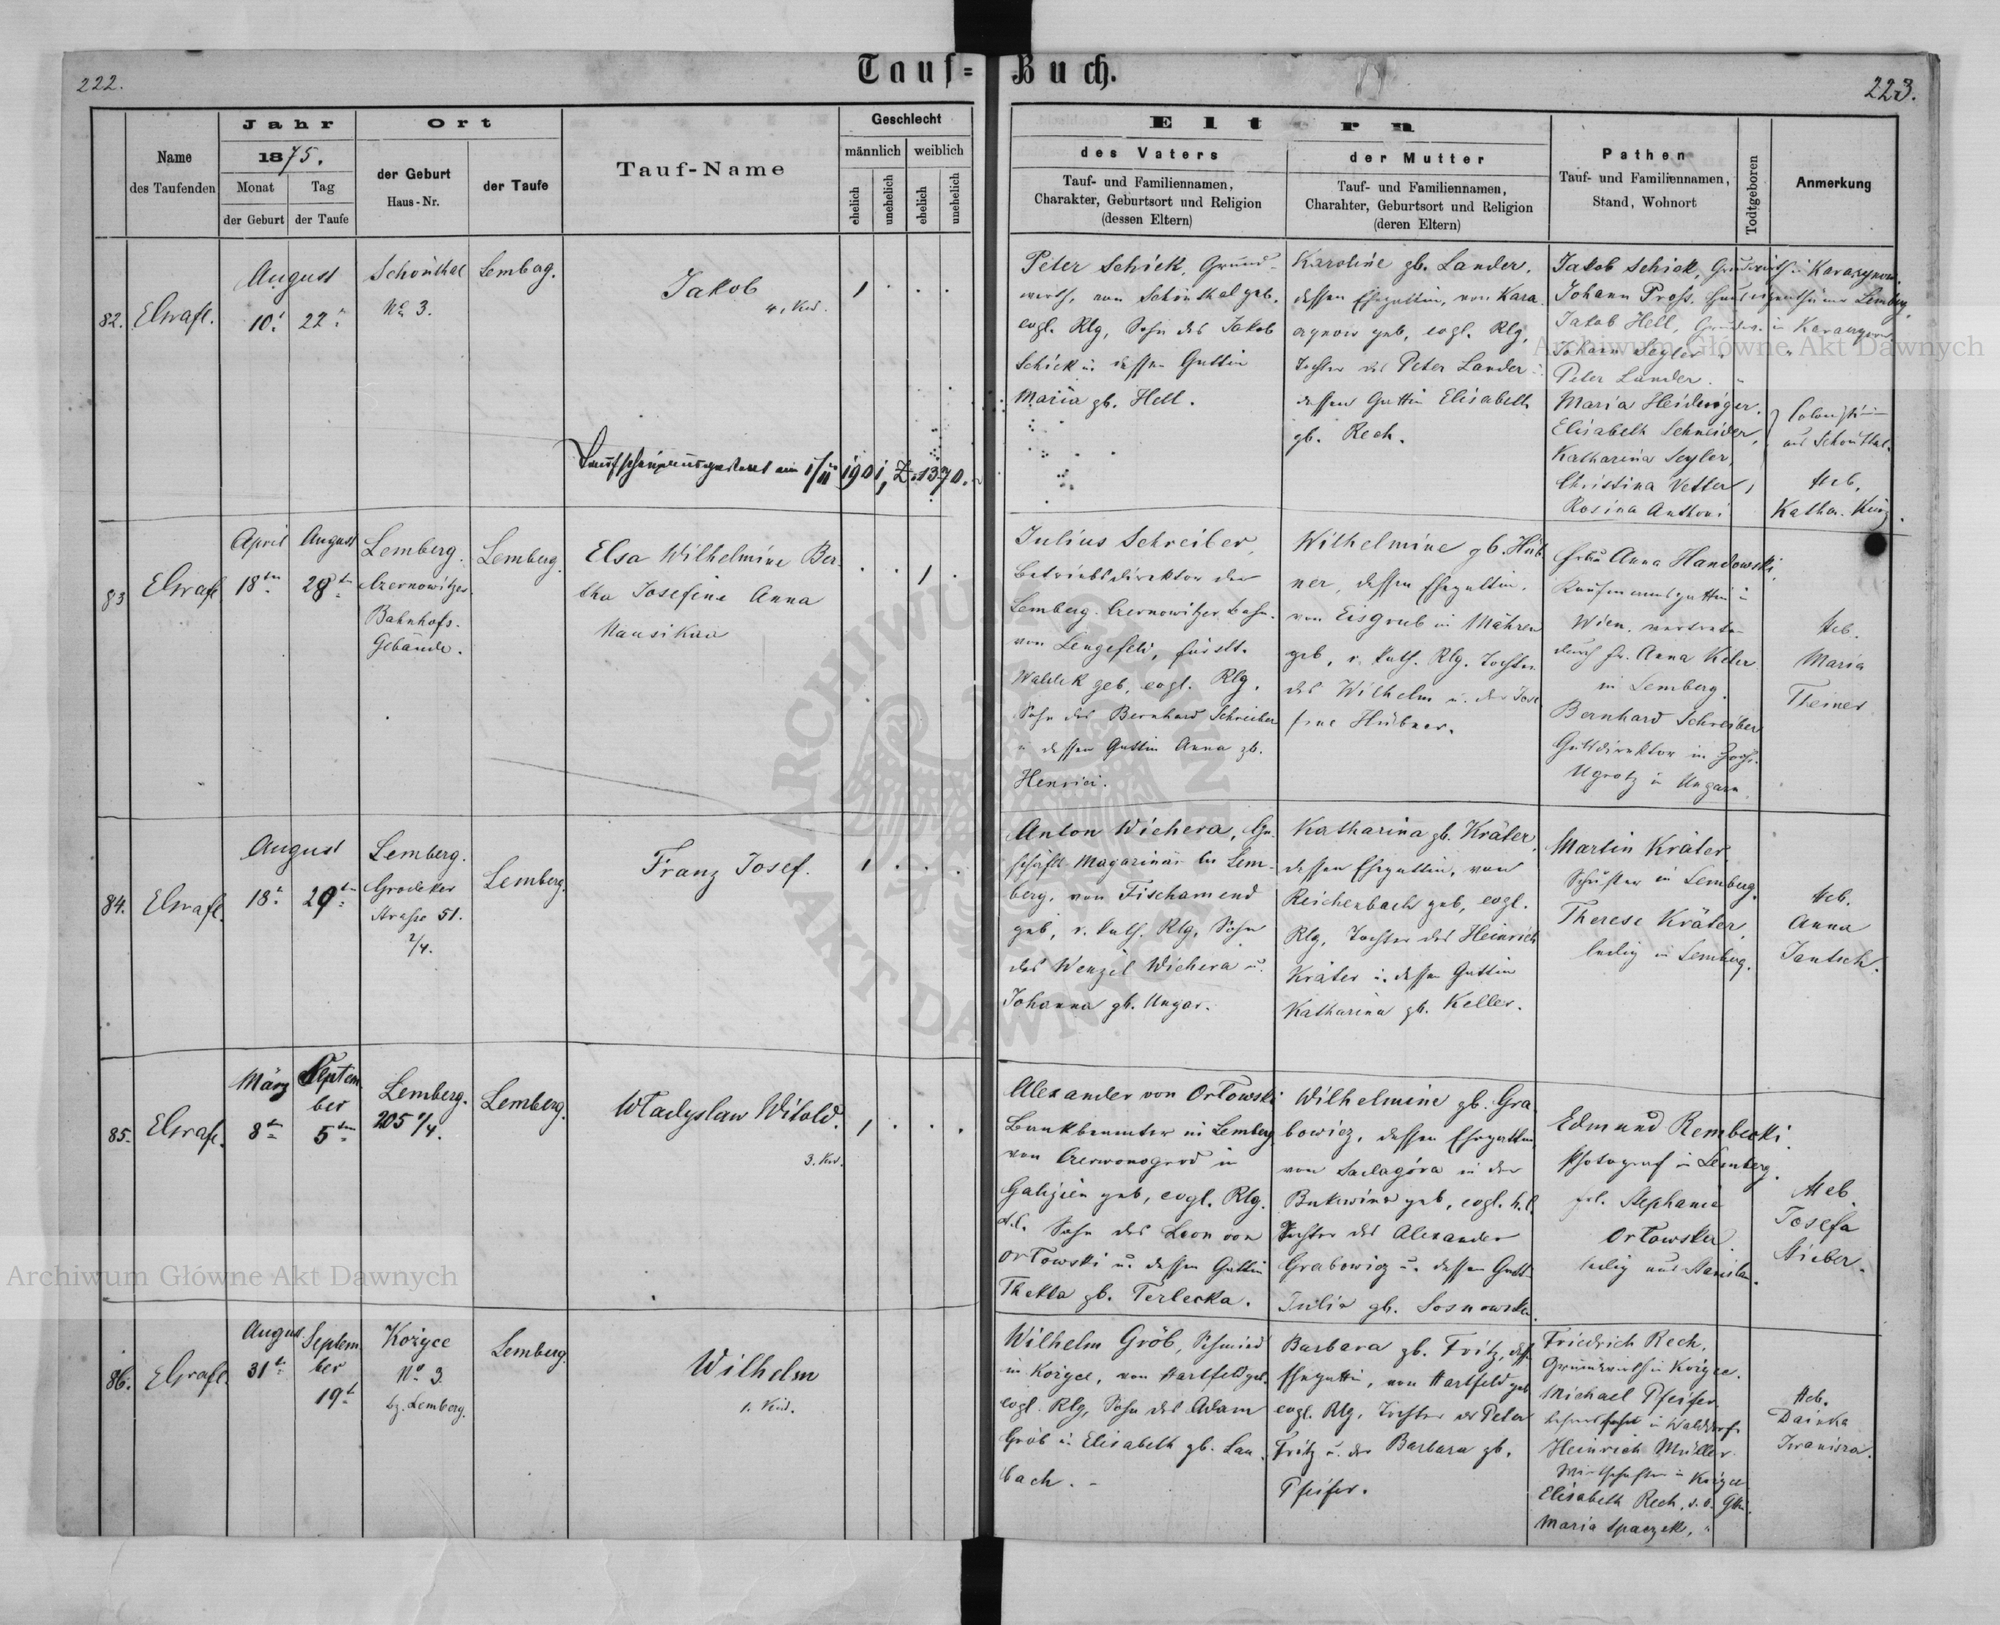 222.
Tauf-Buch.
223.
Name
des Taufenden
Jahr
1875.
Monat
der Geburt
Tag
der Taufe
Ort
der Geburt
Haus-Nr.
der Taufe
Tauf-Name
Geschlecht
männlich
weiblich
ehelich
unehelich
ehelich
unehelich
Eltern
des Vaters
Tauf- und Familiennamen,
Charakter, Geburtsort und Religion
(dessen Eltern)
der Mutter
Tauf- und Familiennamen,
Charahter, Geburtsort und Religion
(deren Eltern)
Pathen
Tauf- und Familiennamen,
Stand, Wohnort
Todtgeboren
Anmerkung
82.
August
10.
22
Schönthal
No 3.
Lemberg.
Jakob
4. Kd.
1
Peter Schick, Grund-
wirth, von Schönthal geb.
evgl. Rlg, Sohn des Jakob
Schick u. dessen Gattin
Maria gb. Hell.
Karoline gb. Lander,
dessen Ehegattin, von Kara
geb, evgl. Rlg,
Tochter des Peter Lander u.
dessen Gattin Elisabeth
gb. Rech.
Jakob Schick,
Johann Pross. Lemberg,
Jakob Hell,
Johann Segler
Peter Lander.
Maria Heidinger,
Elisabeth Schneider,
Katharina Seyler,
Christina Vetter,
Rosina Anthoni
aus Schönthal.
Heb.
Katha. Kunz.
Taufschein ausgestellt am 1/II 1901, Z. 1370.
83
April
18ten
August
28ten
Lemberg.
Czernowitzer
Bahnhofs-
Gebäude.
Lemberg.
Elsa Wilhelmine Ber-
tha Josefine Anna
Nausikaa
1
Julius Schreiber,
Betriebsdirektor der
Lemberg. Czernowitzer Bahn.
von Lengefeld, fürstt.
Waldek geb, evgl. Rlg,
Sohn des Bernhard Schreiber
u dessen Gattin Anna gb.
Henrici.
Wilhelmine gb. Hüb
ner, dessen Ehegattin,
von Eisgrub in Mähren
geb, r. kath. Rlg. Tochter
des Wilhelm u. der Jose
fine Hübner.
Frau Anna Handowski,
Kaufmannsgattin in
Wien, vertreten
durch Fr. Anna Keler
in Lemberg.
Bernhard Schreiber
Gutsdirektor in Gross-
Ugrotz in Ungarn.
Heb.
Maria
Theiner
84.
August
18.
29ten
Lemberg.
Grodeker
Strasse 51.
2/4.
Lemberg.
Franz Josef.
1
Anton Wichera, Ge-
schäfts Magazinär bei Lem-
berg, von Fischamend
geb, r. kath. Rlg, Sohn
des Wenzel Wichera u.
Johanna gb. Ungar.
Katharina gb. Kräter,
dessen Ehegattin, von
Reichenbach geb, evgl.
Rlg, Tochter des Heinrich
Kräter u. dessen Gattin
Katharina gb. Keller.
Martin Kräter,
Schuster in Lemberg.
Therese Kräter,
ledig in Lemberg.
Heb.
Anna
Jantsch.
85.
März
8ten
Septem
ber
5ten
Lemberg.
205 4/4.
Lemberg.
Władyslaw Witold.
3. Kd.
1
Alexander von Orłowski
Bankbeamter in Lemberg
von Czerwonogrod in
Galizien geb, evgl. Rlg.
Sohn des Leon von
Orłowski u. dessen Gattin
Thekla gb. Terlecka.
Wilhelmine gb. Gra
bowicz, dessen Ehegattin,
von Sadagóra in der
Bukowina geb, evgl.
Tochter des Alexander
Grabowicz u. dessen Gatt
Julia gb. Sosnowska.
Edmund Rembecki
Photograf in Lemberg.
Frl. Stephanie
Orłowska
ledig aus Stanislau.
Heb.
Josefa
Stieber.
86.
August
31t
Septem
ber
19t
Kozyce
No 3
bz. Lemberg.
Lemberg.
Wilhelm
1. Kind.
Wilhelm Gröb, Schmied
in Kozyce, von Hartfeld geb.
evgl. Rlg, Sohn des Adam
Gröb u. Elisabeth gb. Lau
bach. -
Barbara gb. Fritz,
Ehegattin, von Hartfeld geb
evgl. Rlg, Tochter des Peter
Fritz u. der Barbara gb.
Pfeifer.
Friedrich Rech,
Grundwirth in Kozyce.
Michael Pfeifer
Heinrich Müller
Elisabeth Rech,
Maria Spaczek,
Heb.
Dainka
Iwanisza
Archiwum Główne Akt Dawnych
Archiwum Główne Akt Dawnych